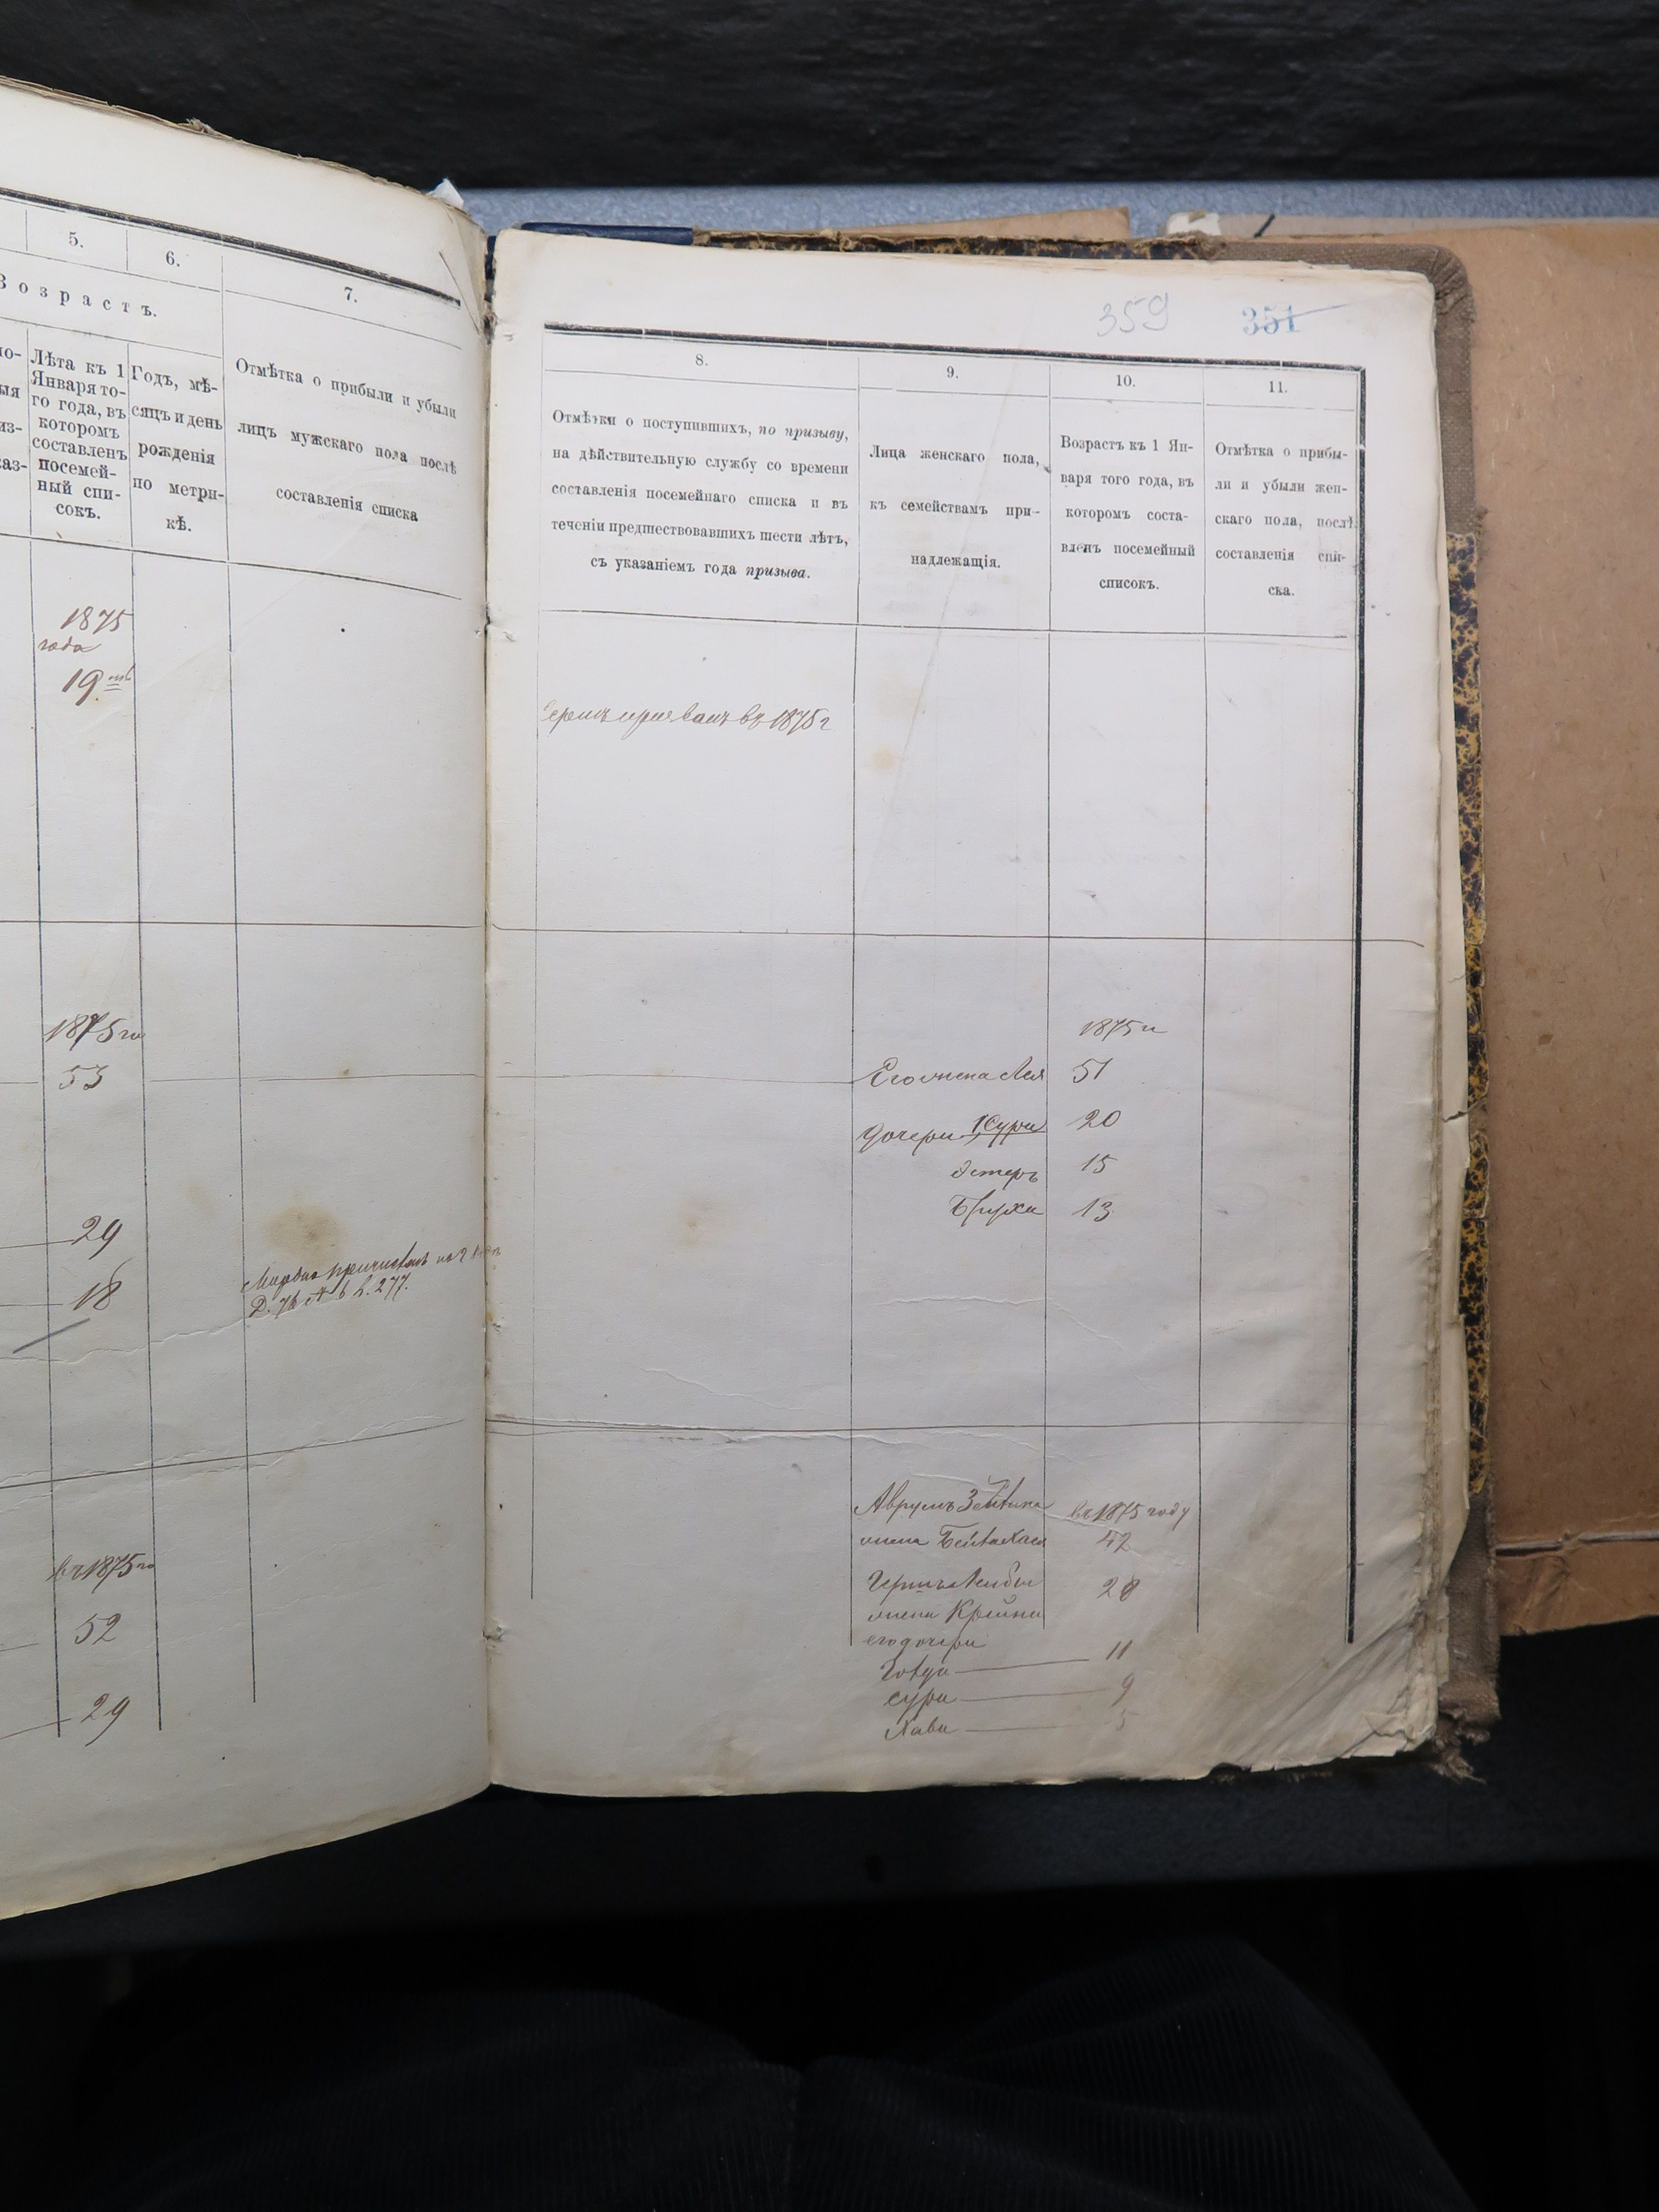 5.
6.
Возрастъ.
7.
Лѣта къ 1
Января то-
го года, въ
которомъ
составленъ
посемей-
ный спи-
сокъ.
Годъ, мѣ-
сяцъ и день
рожденія
по метри-
кѣ.
Отмѣтка о прибыли и убыли
лицъ мужскаго пола послѣ
составленія списка
1875
года
19
1875 го
53
29
18
Д. 76 л. 277.
въ 1875 го
52
29
359 351
8.
9.
10.
11.
Отмѣтки о поступившихъ, по призыву,
на дѣйствительную службу со времени
составленія посемейнаго списка и въ
теченіи предшествовавшихъ шести лѣтъ,
съ указаніемъ года призыва.
Лица женскаго пола,
къ семействамъ при-
надлежащія.
Возрастъ къ 1 Ян-
варя того года, въ
которомъ соста-
вленъ посемейный
списокъ.
Отмѣтка о прибы-
ли и убыли жен-
скаго пола, послѣ
составленія спи-
ска.
въ 1875 г
1875 г
Его жена Лея 51
дочери 1 Сура 20
Эстеръ 15
Бруха 13
Аврумъ Зейлика въ 1875 году
жена 42
Гершъ Лейбы 28
жена Крейна
его дочери
11
Сура 9
Хава 5